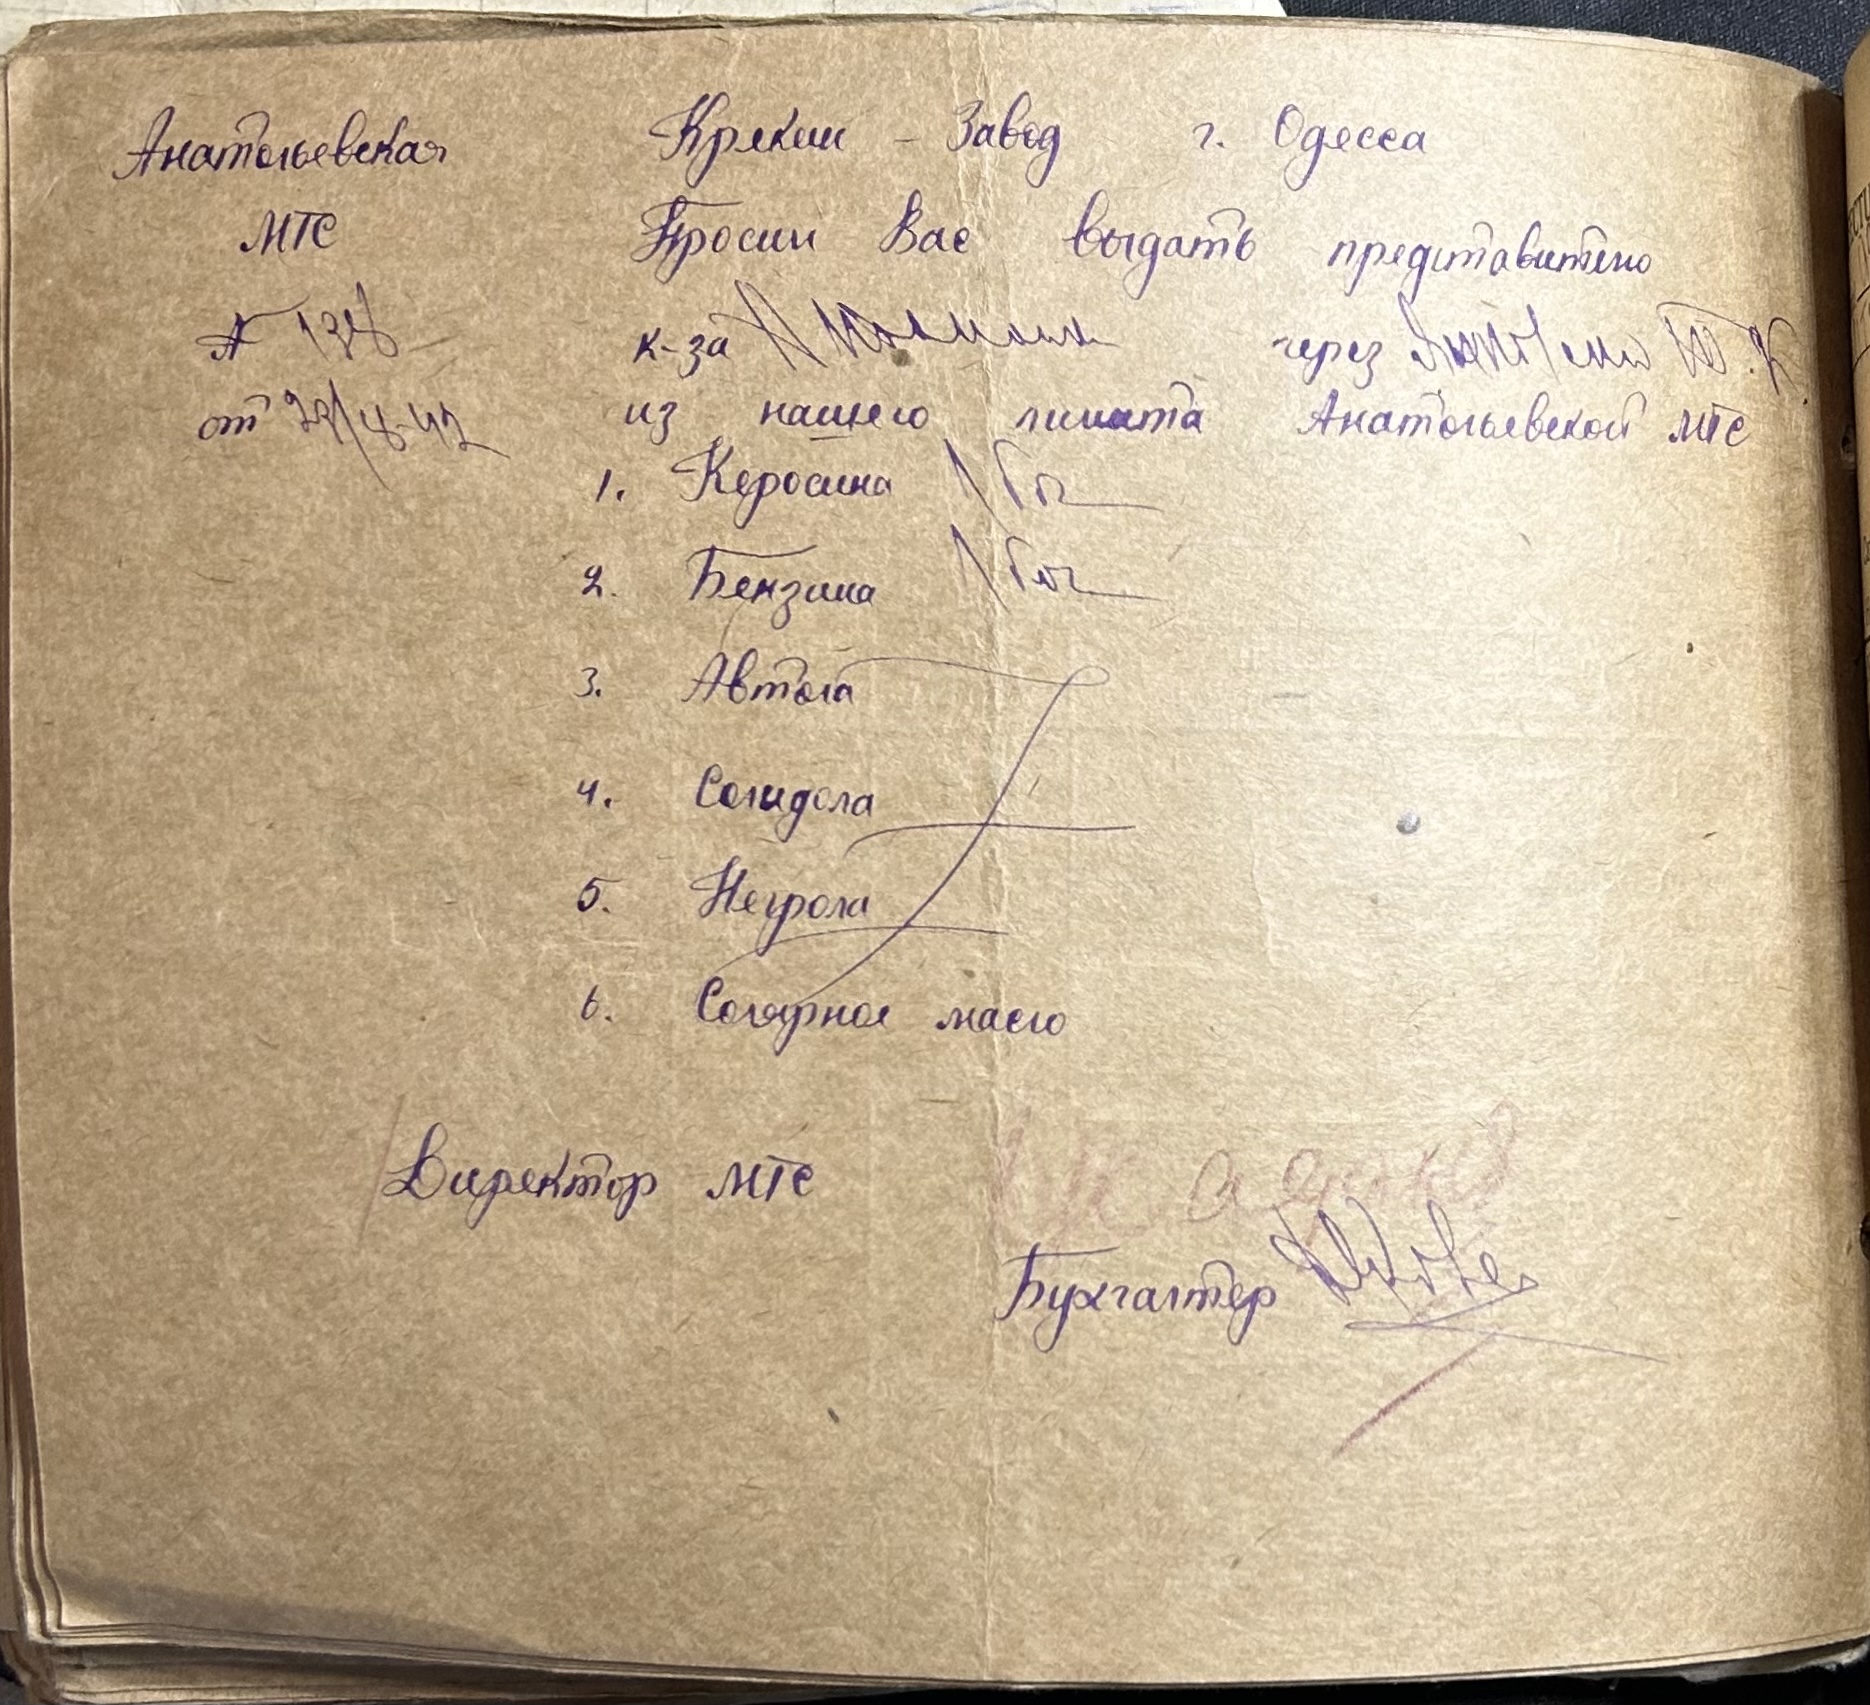 Анатольевская
МТС
№ 138
от 29/4-42
Крекин - Завод г. Одесса
Просим Вас выдать представителю
к-за через Т. К.
из нашего лимита Анатольевской МТС
1. Керосина 1 боч
2. Бензина 1 боч
3. Автола
4. Солидола
5. Негрола
6. Солярное масло
Директор МТС
Бухгалтер